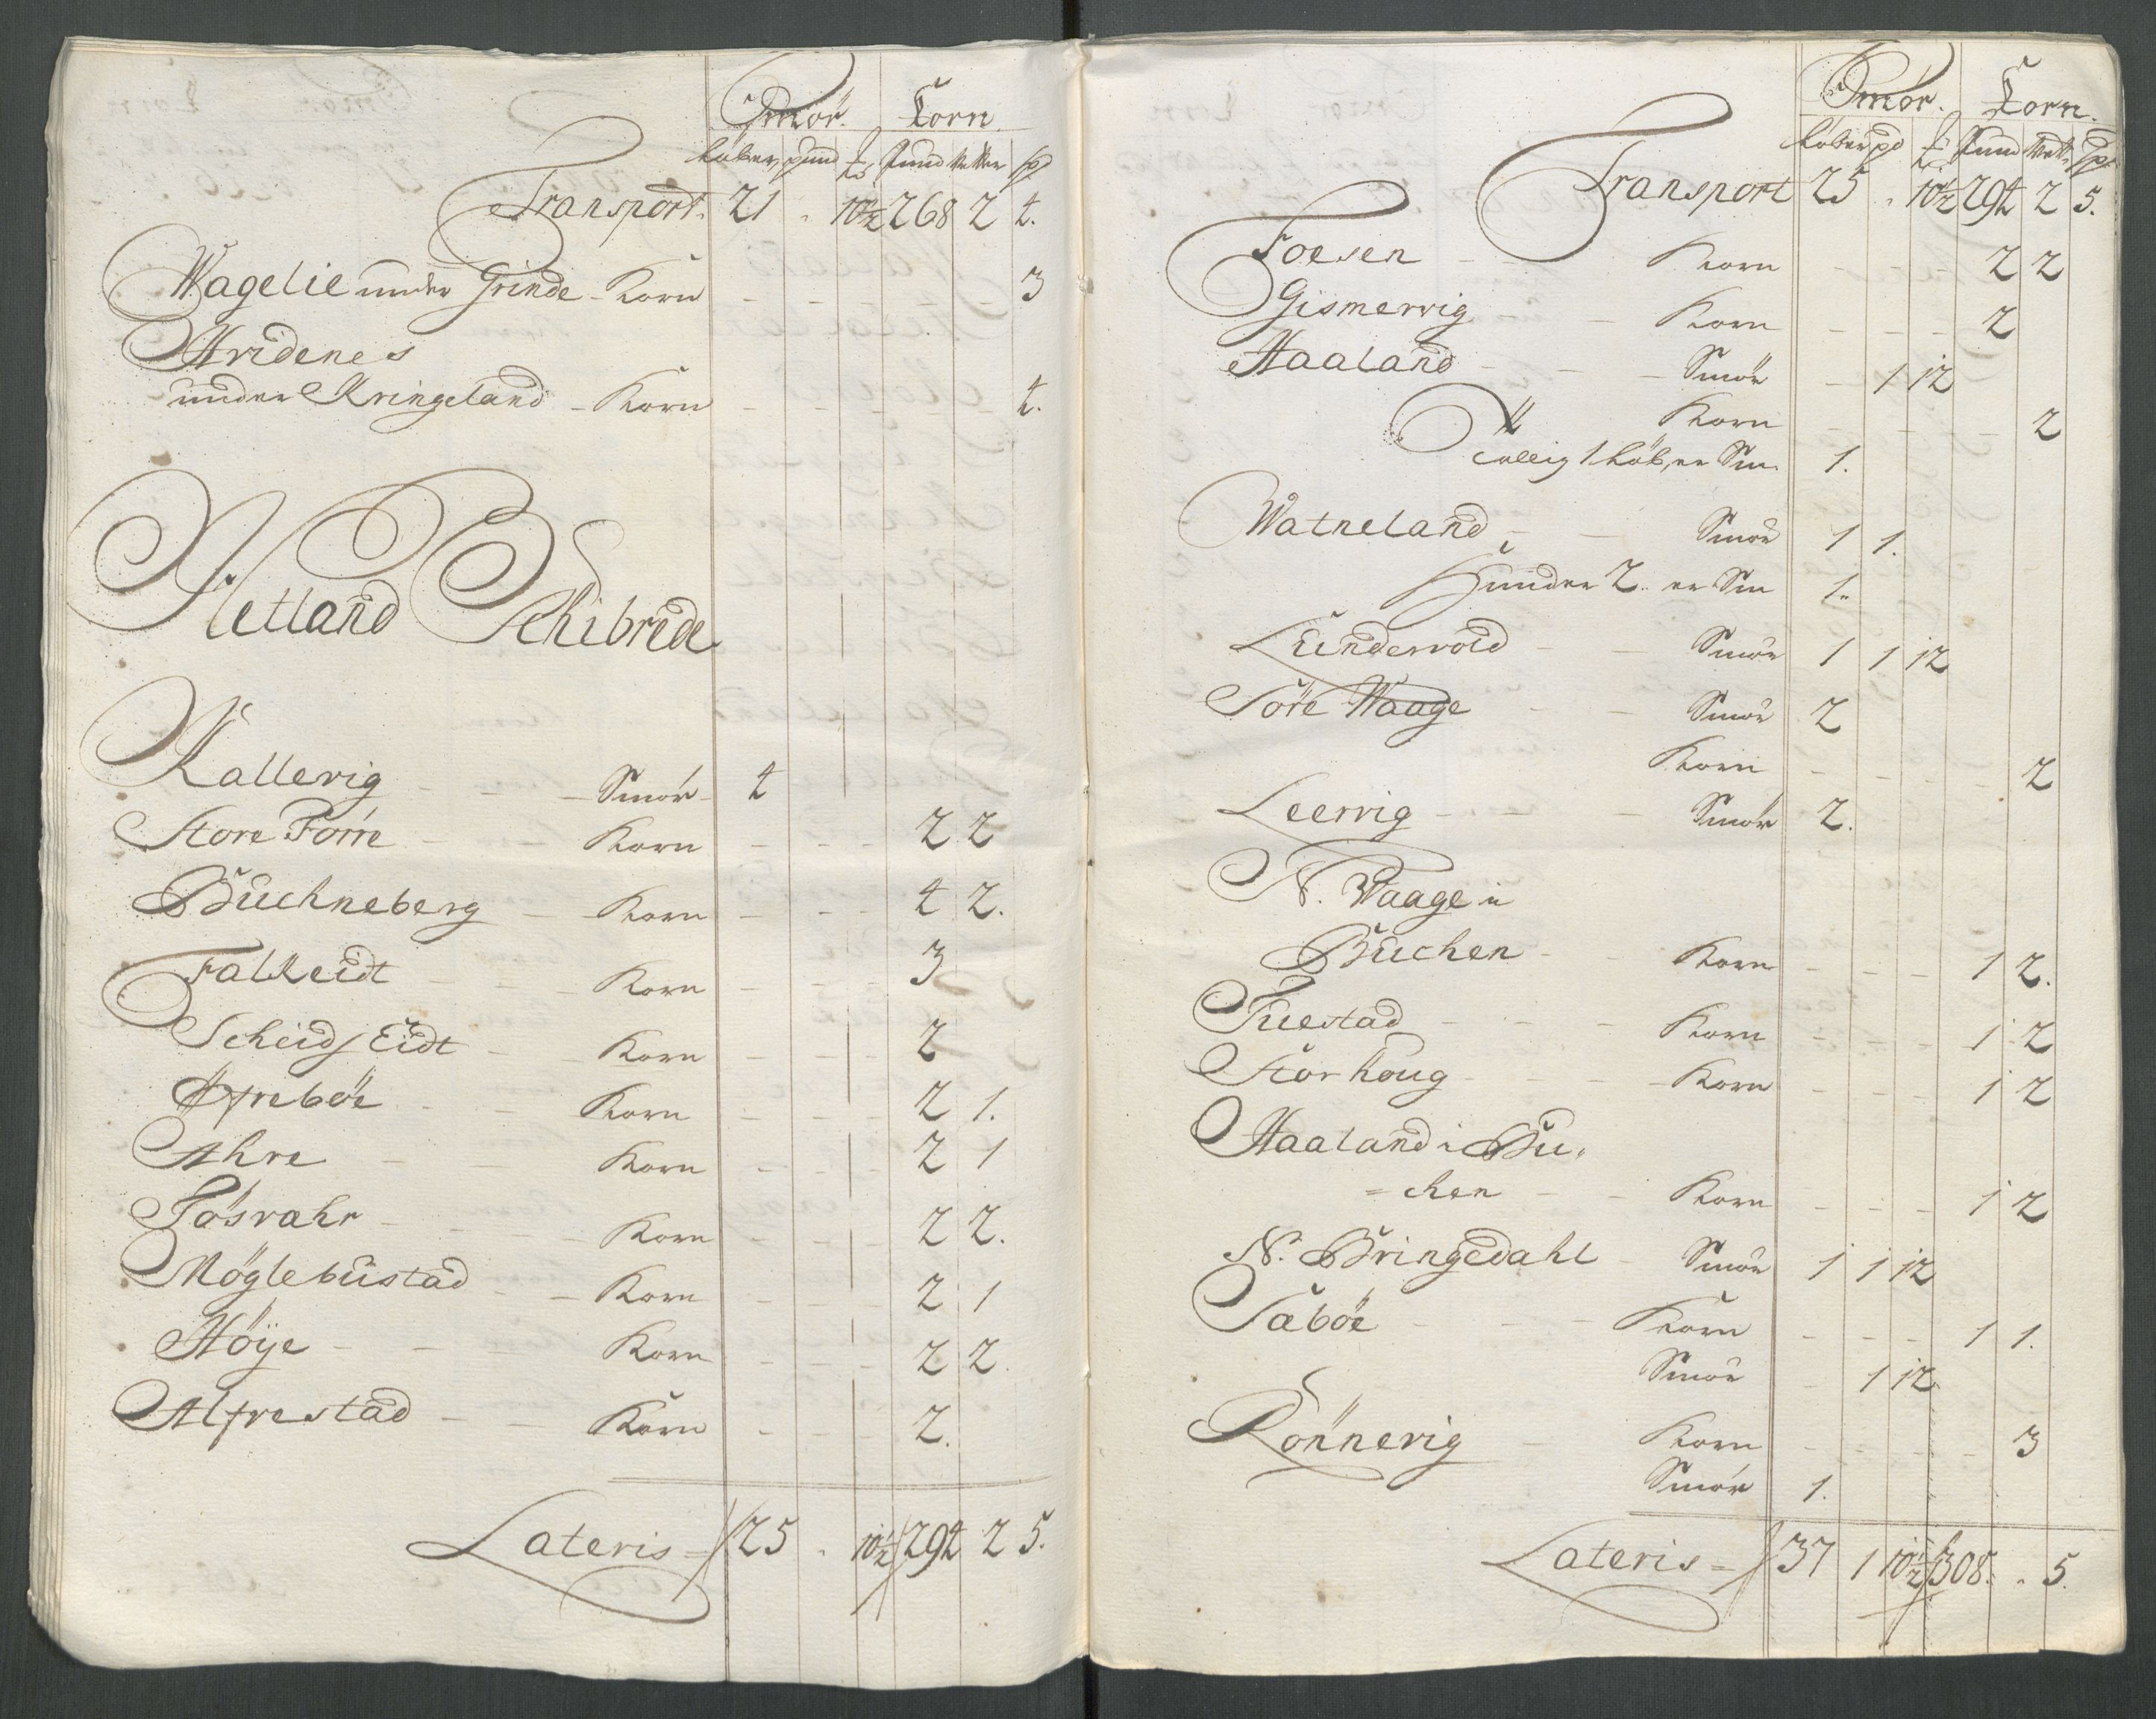 Smör. Korn.
Löber pund ℔ Pund Wetter sp
Transport. 21 . 10½ 268 2 4.
Wagelie under Grinde - Korn 3
Hvidenes
under Kringeland - Korn 4.
Hetland Schibrede
Kallevig - Smör 4
Store Forre - Korn 2 2
Buchneberg - Korn 4 2.
Falkeidt - Korn 3
Scheids Eidt - Korn 2
Öfreböe - Korn 2 1.
Ahre - Korn 2 1
Fösvahr - Korn 2 2.
Möglebustad - Korn 2 1
Höije - Korn 2 2.
Alfrestad - Korn 2.
Lateris 25 . 10½ 294 2 5.
Smör. Korn.
Löber pd ℔ Pund Wett sp
Transport 25 . 10½ 294 2 5.
Foesen - Korn 2 2
Gismervig - Korn 2
Haaland - Smör 1 12
Korn 2
1 Löb er Sm. 1.
Watneland - Smör 1 1.
2. er Sm 1.
Lundervold - Smör 1 1 12
Söre Waage - Smör 2
Korn 2
Leervig - Smör 2.
N. Waage i
Buchen - Korn 1 2.
Tuestad - Korn 1 2
Storhoug - Korn 1 2
Haaland i Bu-
=chen - Korn 1 2
N. Bringedahl - Smör 1 1 12
Saböe - Korn 1 1.
Smör 1 12
Rönnevig - Korn 3
Smör 1.
Lateris 37 1 10½ 308. . 5.